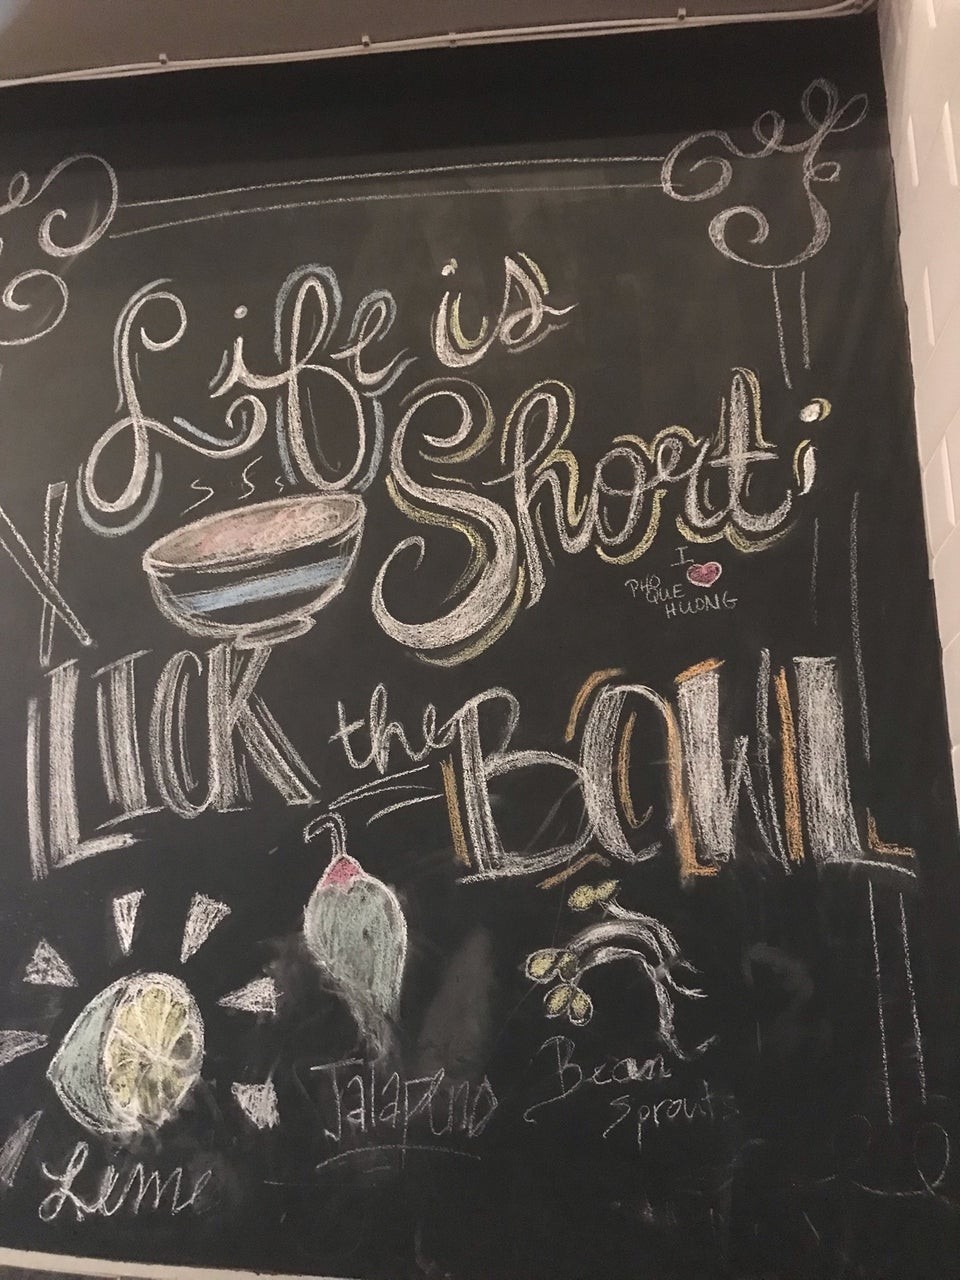 Life is
Short;
I
PHỞ
QUE
HUONG
LICK the BOWL
Lime
Jalapeno
Bean
Sprouts